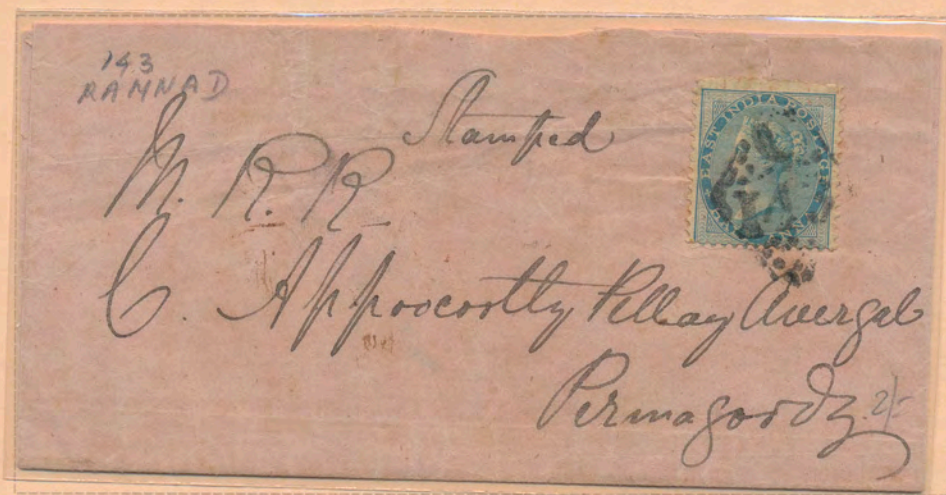 143
RAMNAD
Stamped
EAST INDIA POSTAGE
M. R. R
C. Appoocootty Pillay Avergal
Permagoody
2/-